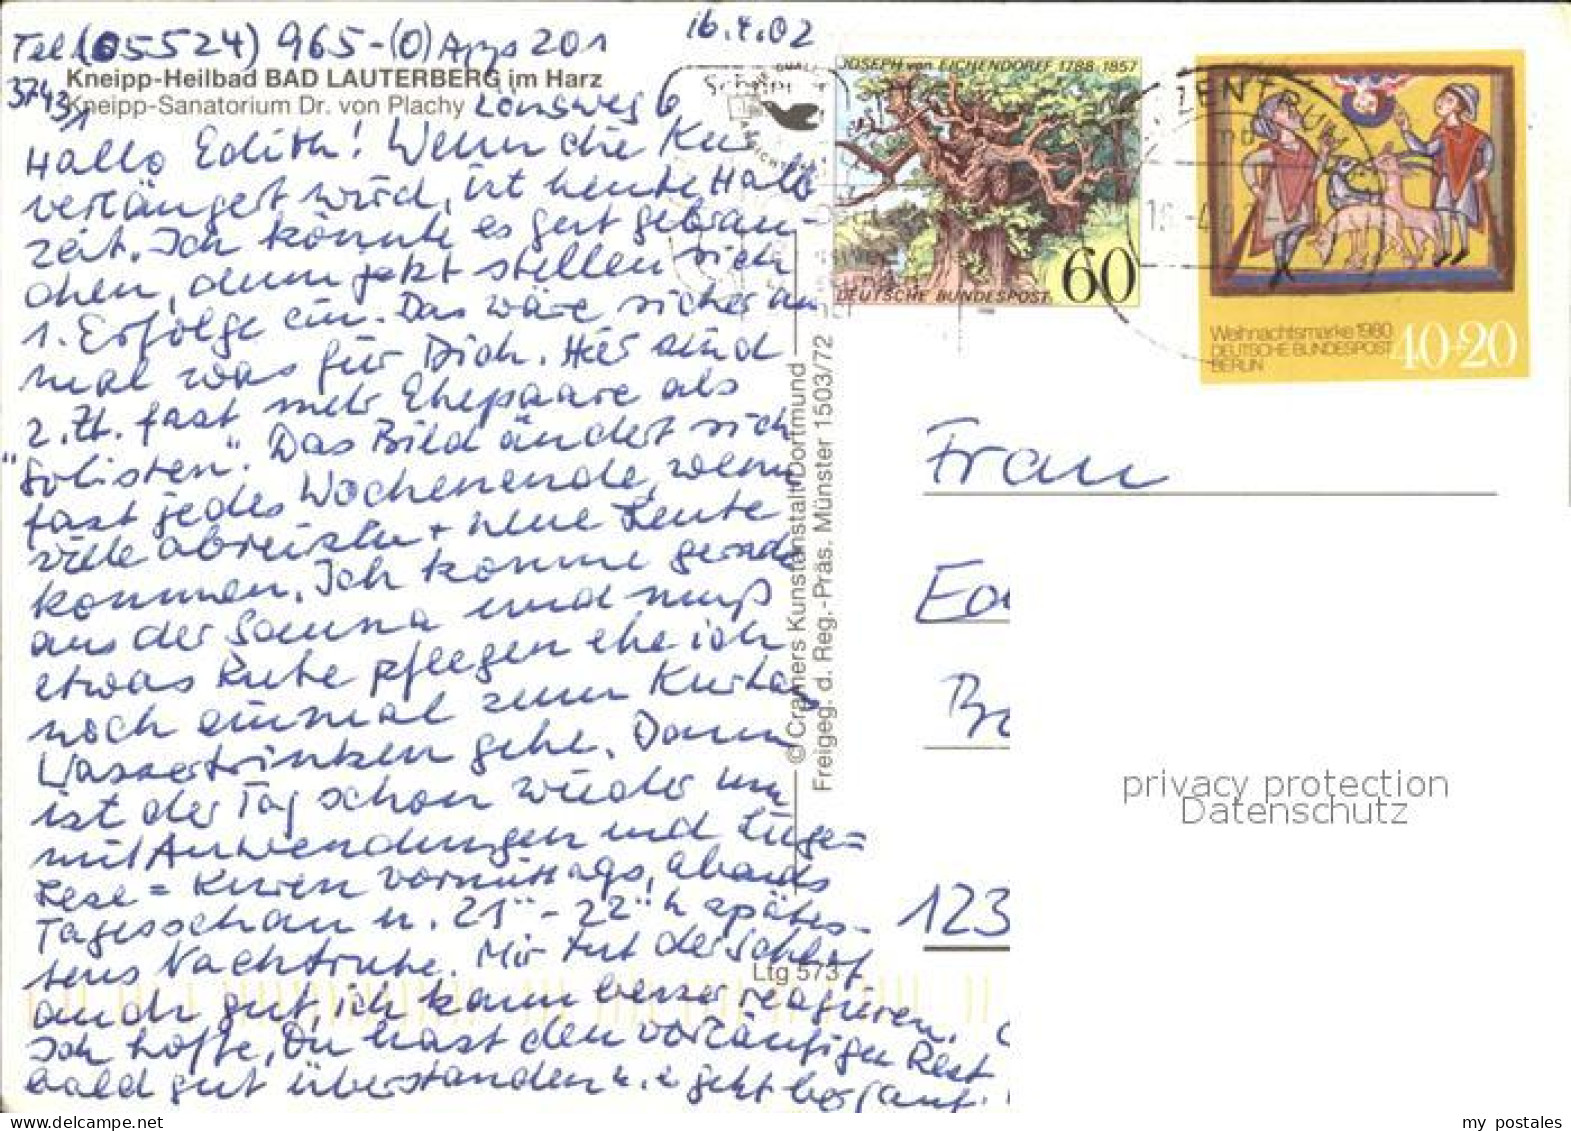 Tel (05524) 965-(0) App 201
16.4.02
Kneipp-Heilbad BAD LAUTERBERG im Harz
37431
Kneipp-Sanatorium Dr. von Plachy Lönsweg 6
Hallo Edith! Wenn die Kur
verlängert wird, ist heute Halb
zeit. Ich könnte es gut gebrau-
chen, denn jetzt stellen sich
1. Erfolge ein. Das wäre sicher
mal was für Dich. Hier sind
z. Zt. fast mehr Ehepaare als
"Solisten". Das Bild ändert sich
fast jedes Wochenende, wenn
viele abreisen + neue Leute
kommen. Ich komme gerade
aus der Sauna und muß
etwas Ruhe pflegen ehe ich
noch einmal zum
Wassertrinken gehe. Dann
ist der Tag schon wieder um
mit Anwendungen und Liege=
Lese = Kuren vormittags, abends
Tagesschau u. 21°° - 22°° h spätes-
tens Nachtruhe. Mir tut der Schlaf
auch gut, ich kann besser reagieren.
Ich hoffe, Du hast den vorläufigen Rest
bald gut überstanden u. jetzt
© Cramers Kunstanstalt Dortmund
Freigeg. d. Reg.-Präs. Münster 1503/72
Ltg 573
JOSEPH von EICHENDORFF 1788-1857
DEUTSCHE BUNDESPOST 60
ZENTRUM
Weihnachtsmarke 1980
DEUTSCHE BUNDESPOST
BERLIN
40+20
Frau
123
privacy protection
Datenschutz
my postales